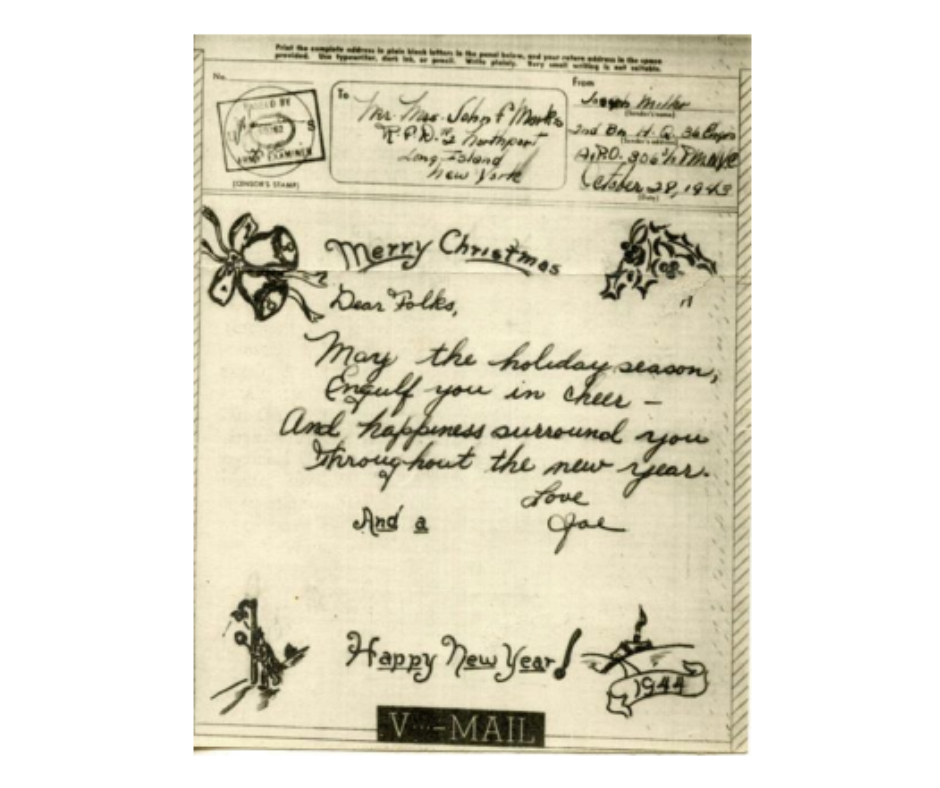 Print the complete address in plain block letters in the panel below, and your return address in the space
provided. Use typewriter, dark ink, or pencil. Write plainly. Very small writing is not suitable.
No.
PASSED BY
U S
ARMY EXAMINER
(CENSOR'S STAMP)
To
Mr. Mrs. John F. Marks
R.F.D. #2 Northport
Long Island
New York
From
Joseph Miller
(Sender's name)
2nd Bn. H.Q. 36 Engrs
(Sender's address)
A.P.O. 306 % P.M. N.Y.C.
October 28, 1943
(Date)
Merry Christmas
Dear Folks,
May the holiday season,
Engulf you in cheer —
And happiness surround you
Throughout the new year.
Love
Joe
And a
Happy New Year!
1944
V···—MAIL